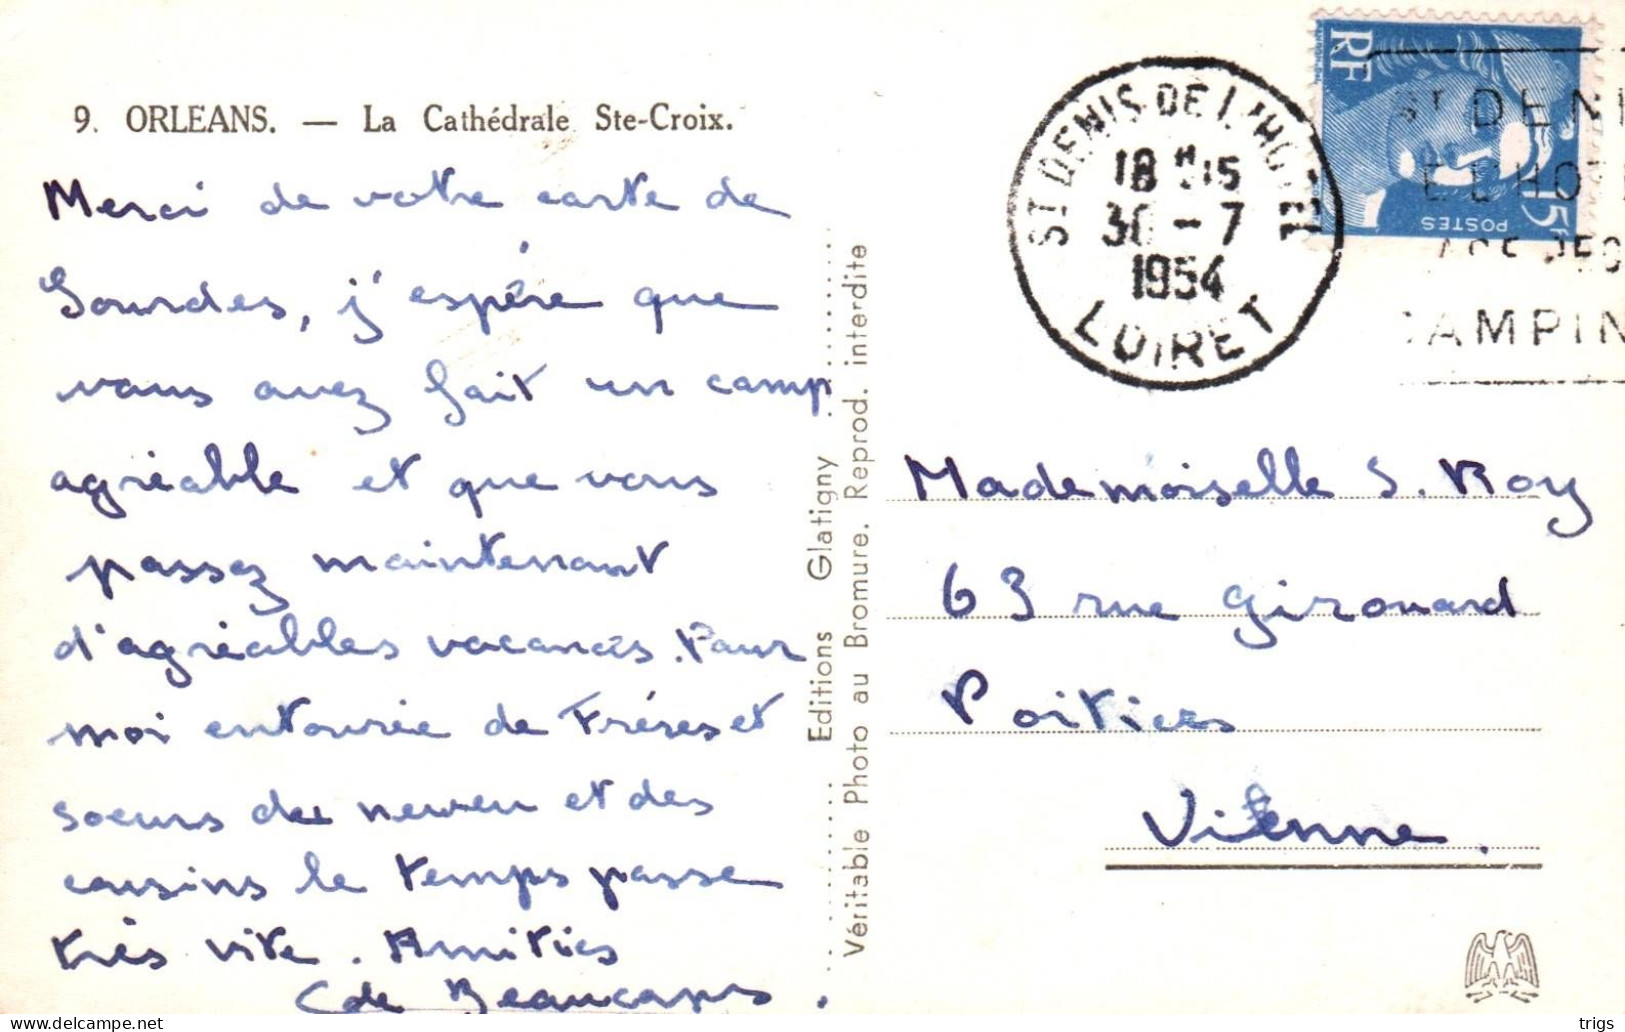 9. ORLEANS. — La Cathédrale Ste-Croix.
Merci de votre carte de
Lourdes, j'espère que
vous avez fait un camp
agréable et que vous
passez maintenant
d'agréables vacances. Pour
moi entourée de Frères et
soeurs du neveu et des
cousins le temps passe
très vite. Amitiés
C de Beaucorps.
Editions Glatigny
Véritable Photo au Bromure. Reprod. interdite
ST DENIS DE L'HOTEL
18 H15
30 - 7
1954
LOIRET
RF
POSTES
15F
ST DENI
CAMPIN
Mademoiselle S. Roy
63 rue Girouard
Poitiers
Vienne.
delcampe.net
trigs